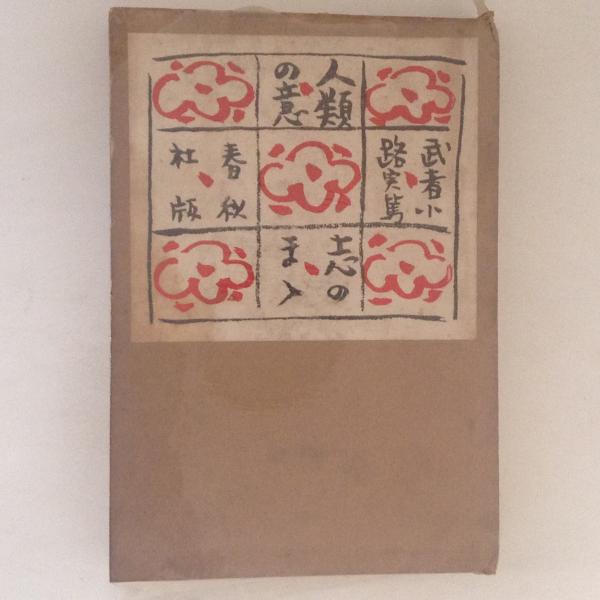 人類
の意
志の
まゝ
武者小
路実篤
春秋
社版